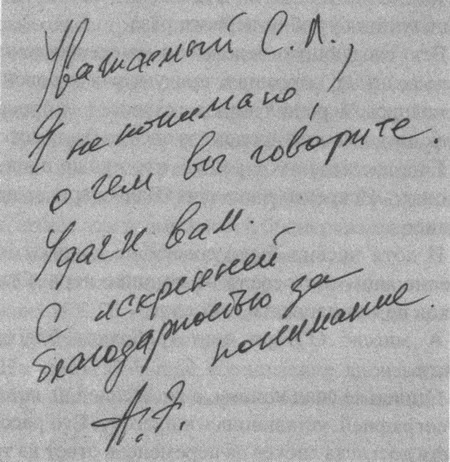 Уважаемый С.Л.,
Я не понимаю,
о чем вы говорите.
Удачи вам.
С искренней
благодарностью за
понимание.